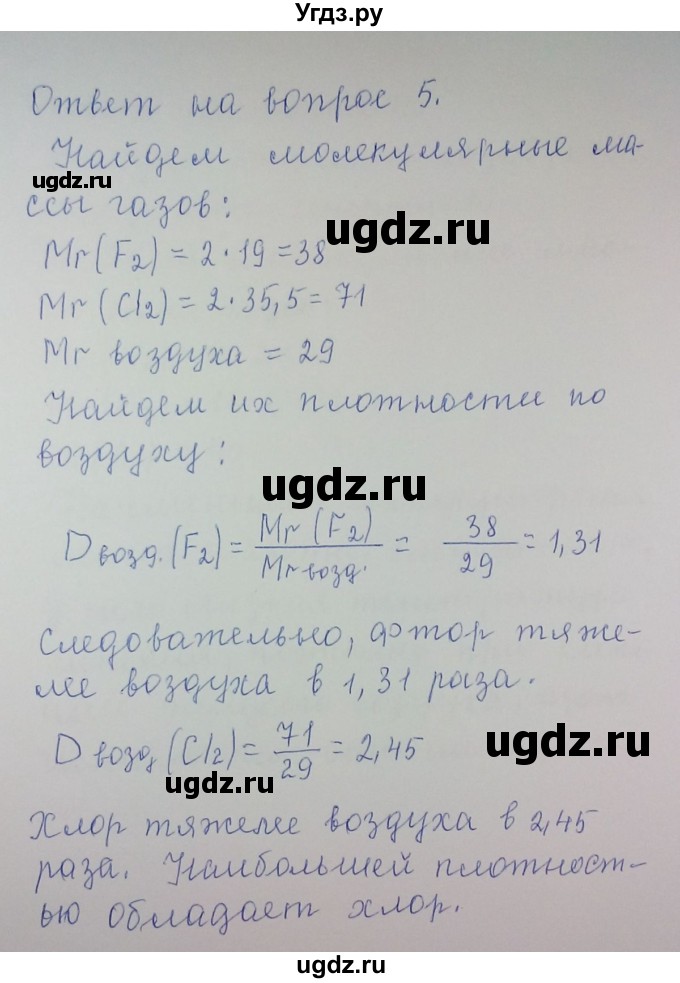 Угдз.ру
Ответ на вопрос 5.
Найдем молекулярные ма-
ugdz.ru
ссы газов:
ugdz.ru
Mr(F₂) = 2·19=38
Mr(Cl₂) = 2·35,5=71
Mr воздуха = 29
Найдем их плотности по
воздуху:
ugdz.ru
D возд.(F₂) = Mr(F₂)/Mr возд. = 38/29 = 1,31
Следовательно, фтор тяже-
лее воздуха в 1,31 раза.
ugdz.ru
D возд(Cl₂) = 71/29 = 2,45
ugdz.ru
Хлор тяжелее воздуха в 2,45
раза. Наибольшей плотност-
ью обладает хлор.
ugdz.ru